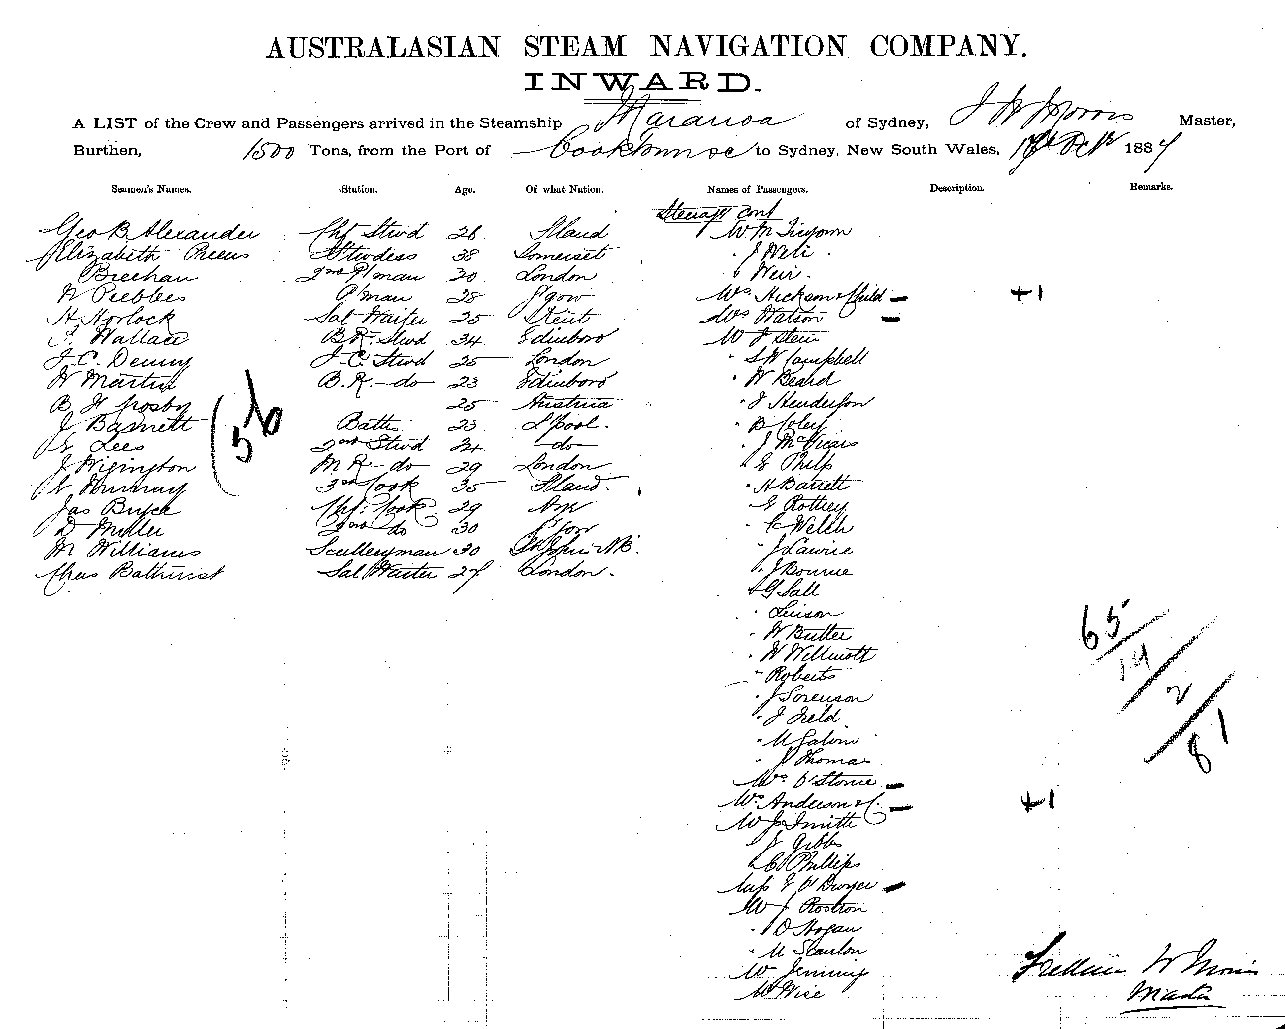 AUSTRALASIAN STEAM NAVIGATION COMPANY.
INWARD.
A LIST of the Crew and Passengers arrived in the Steamship Maranoa of Sydney, Master,
Burthen, 1500 Tons, from the Port of Cooktown &c to Sydney, New South Wales, 188
Seamen's Names. Station. Age. Of what Nation. Names of Passengers. Description. Remarks.
Steerage Cont
Geo B Alexander Chf Stwd 26
Elizabeth Stwdess 38 Somerset
Breehan 2nd P/man 30 London
W Peebles P/man 28 G'gow
H Horlock Sal Waiter 25 Kent
F. Wallace B.R. Stwd 34 Edinboro
J.C. Denny J.C. Stwd 25 London
W Martin B.R. do 23 Edinboro
B W Crosby 25 Austria
J Barnett Baths 23 L'pool.
E Lees 2nd Stwd 24 do
J Wigington M R do 29 London
Murray 3rd Cook 35
Jas Bryce Chf. Cook 29
D Miller 2nd do 30 G'gow
M Williams Sculleryman 30 St John N.B.
Chas Bathurst Sal Waiter 27 London.
56
J Weli
Weir
Mrs Hickson & Child +1
Mrs Watson
Mr J Stein
S W Campbell
W Beard
J Henderson
B Coley
J McVicars
E Philp
H Barrett
E Rothey
C Welch
J Lawrie
J Bourne
G Sall
Linson
W Butler
W Willmott
Roberts
J Sorenson
J Field
M Galvin
J Thomas
Mrs O'Stone
Mrs Anderson & C. +1
Mr J Smith
J Gibbs
C Phillips
Miss E O'Dwyer
Mr J Rostron
O Hogan
M Scanlon
Mr Jenning
Mr Wise
65
14
2
81
W Morris
Master